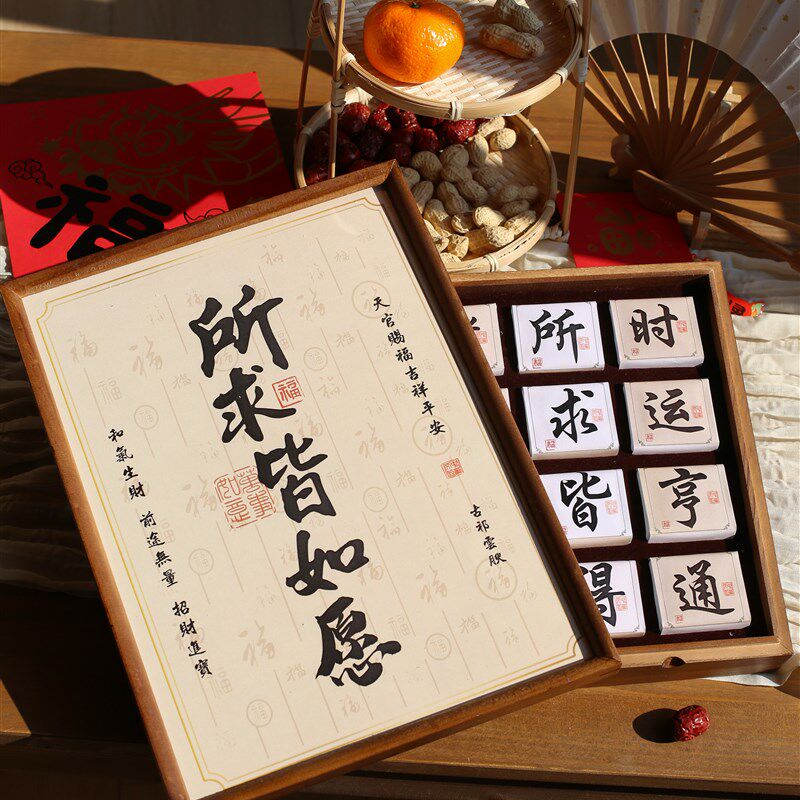 福
所求皆如愿
福
萬事如意
天官赐福吉祥平安
古祁雲腴
和氣生財 前途無量 招財進寶
所求皆得
时运亨通